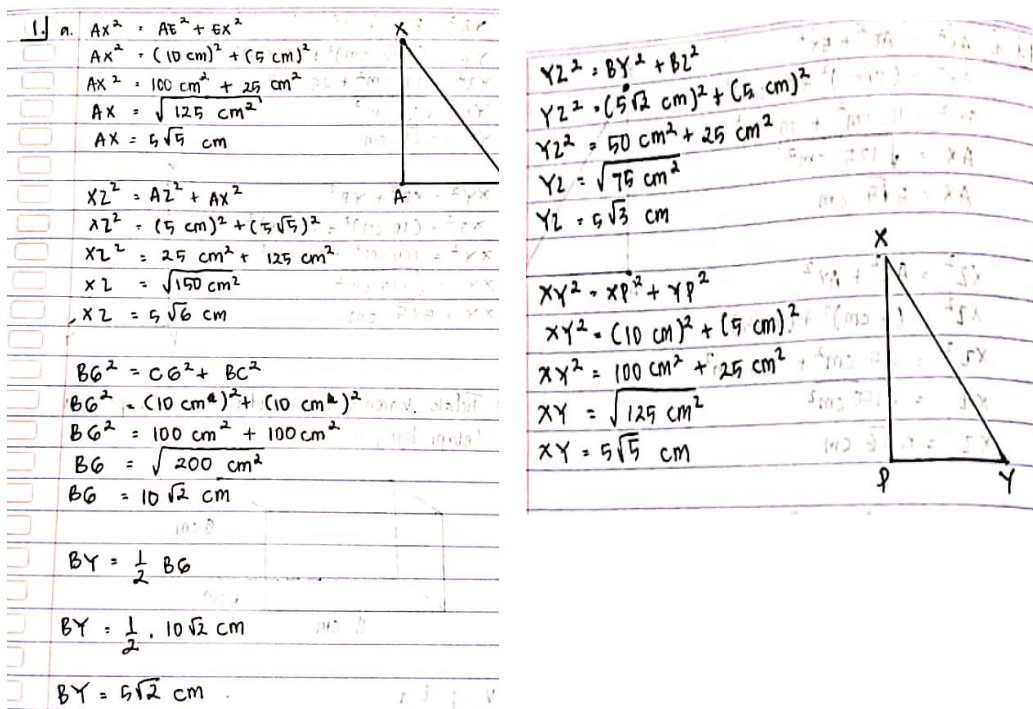 1. a. AX² = AE² + EX²
AX² = (10 cm)² + (5 cm)²
AX² = 100 cm² + 25 cm²
AX = √125 cm²
AX = 5√5 cm
X
A
XZ² = AZ² + AX²
XZ² = (5 cm)² + (5√5)²
XZ² = 25 cm² + 125 cm²
XZ = √150 cm²
XZ = 5√6 cm
BG² = CG² + BC²
BG² = (10 cm)² + (10 cm)²
BG² = 100 cm² + 100 cm²
BG = √200 cm²
BG = 10√2 cm
BY = 1/2 BG
BY = 1/2 . 10√2 cm
BY = 5√2 cm
YZ² = BY² + BZ²
YZ² = (5√2 cm)² + (5 cm)²
YZ² = 50 cm² + 25 cm²
YZ = √75 cm²
YZ = 5√3 cm
XY² = XP² + YP²
XY² = (10 cm)² + (5 cm)²
XY² = 100 cm² + 25 cm²
XY = √125 cm²
XY = 5√5 cm
X
P
Y